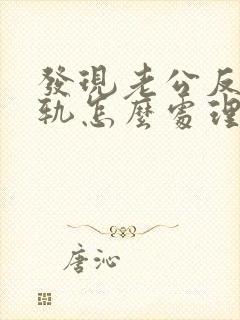 發現老公反
軌怎麼處理
唐沁